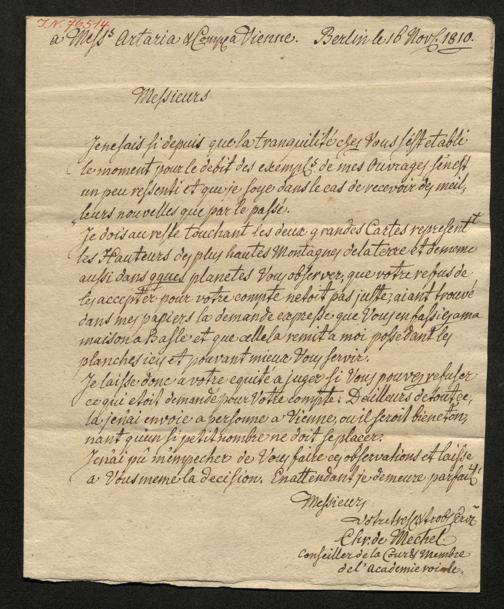 I.N. 76514
a Mess.s Artaria & Comp. a Vienne. Berlin le 16 Nov. 1810.
Messieurs
Je ne sais si depuis que la tranquilité chez Vous s'est etabli
le moment pour le debit des exempl.s de mes Ouvrages s'en est
un peu ressenti et que je soye dans le cas de recevoir des meil,
leurs nouvelles que par le passé.
Je dois au reste touchant les deux grandes Cartes represent.t
les Hauteurs des plus hautes Montagnes de la terre et de meme
aussi dans qques planetes Vous observer, que votre refus de
les accepter pour votre compte n'etoit pas juste; aiant trouvé
dans mes papiers la demande expresse que Vous en fassiez a ma
maison a Basle et que celle la remit a moi possedant les
planches ici et pouvant mieux Vous servir.
Je laisse donc a votre equité a juger si Vous pouvez refuser
ce qui etoit demandé pour Votre compte. D'ailleurs de tout ce,
la je n'ai envoié a personne a Vienne, ou il seroit bien eton,
nant qu'un si petit nombre ne doit se placer.
Je n'ai pû m'empecher de Vous faire ces observations et laisse
a Vous meme la decision. En attendant je demeure parfait.t
Messieurs
Votre tres
Chr. de Mechel
Conseiller de la Cour & Membre
de l'Academie roiale.